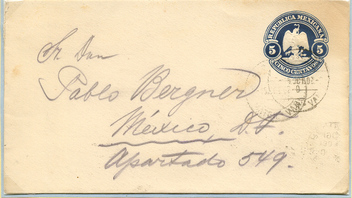 REPUBLICA MEXICANA
5 5
CINCO CENTAVOS
Sr. Don
Pablo Bergner
México, D.F.
Apartado 549.